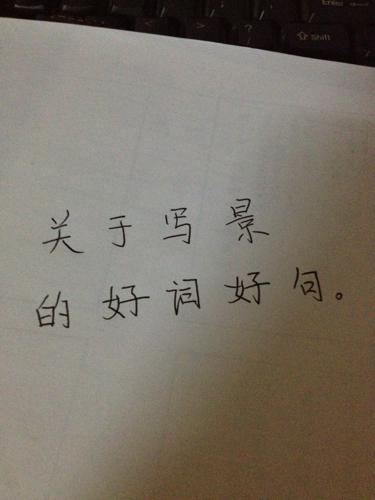 Enter
?
Shift
关于写景
的好词好句。